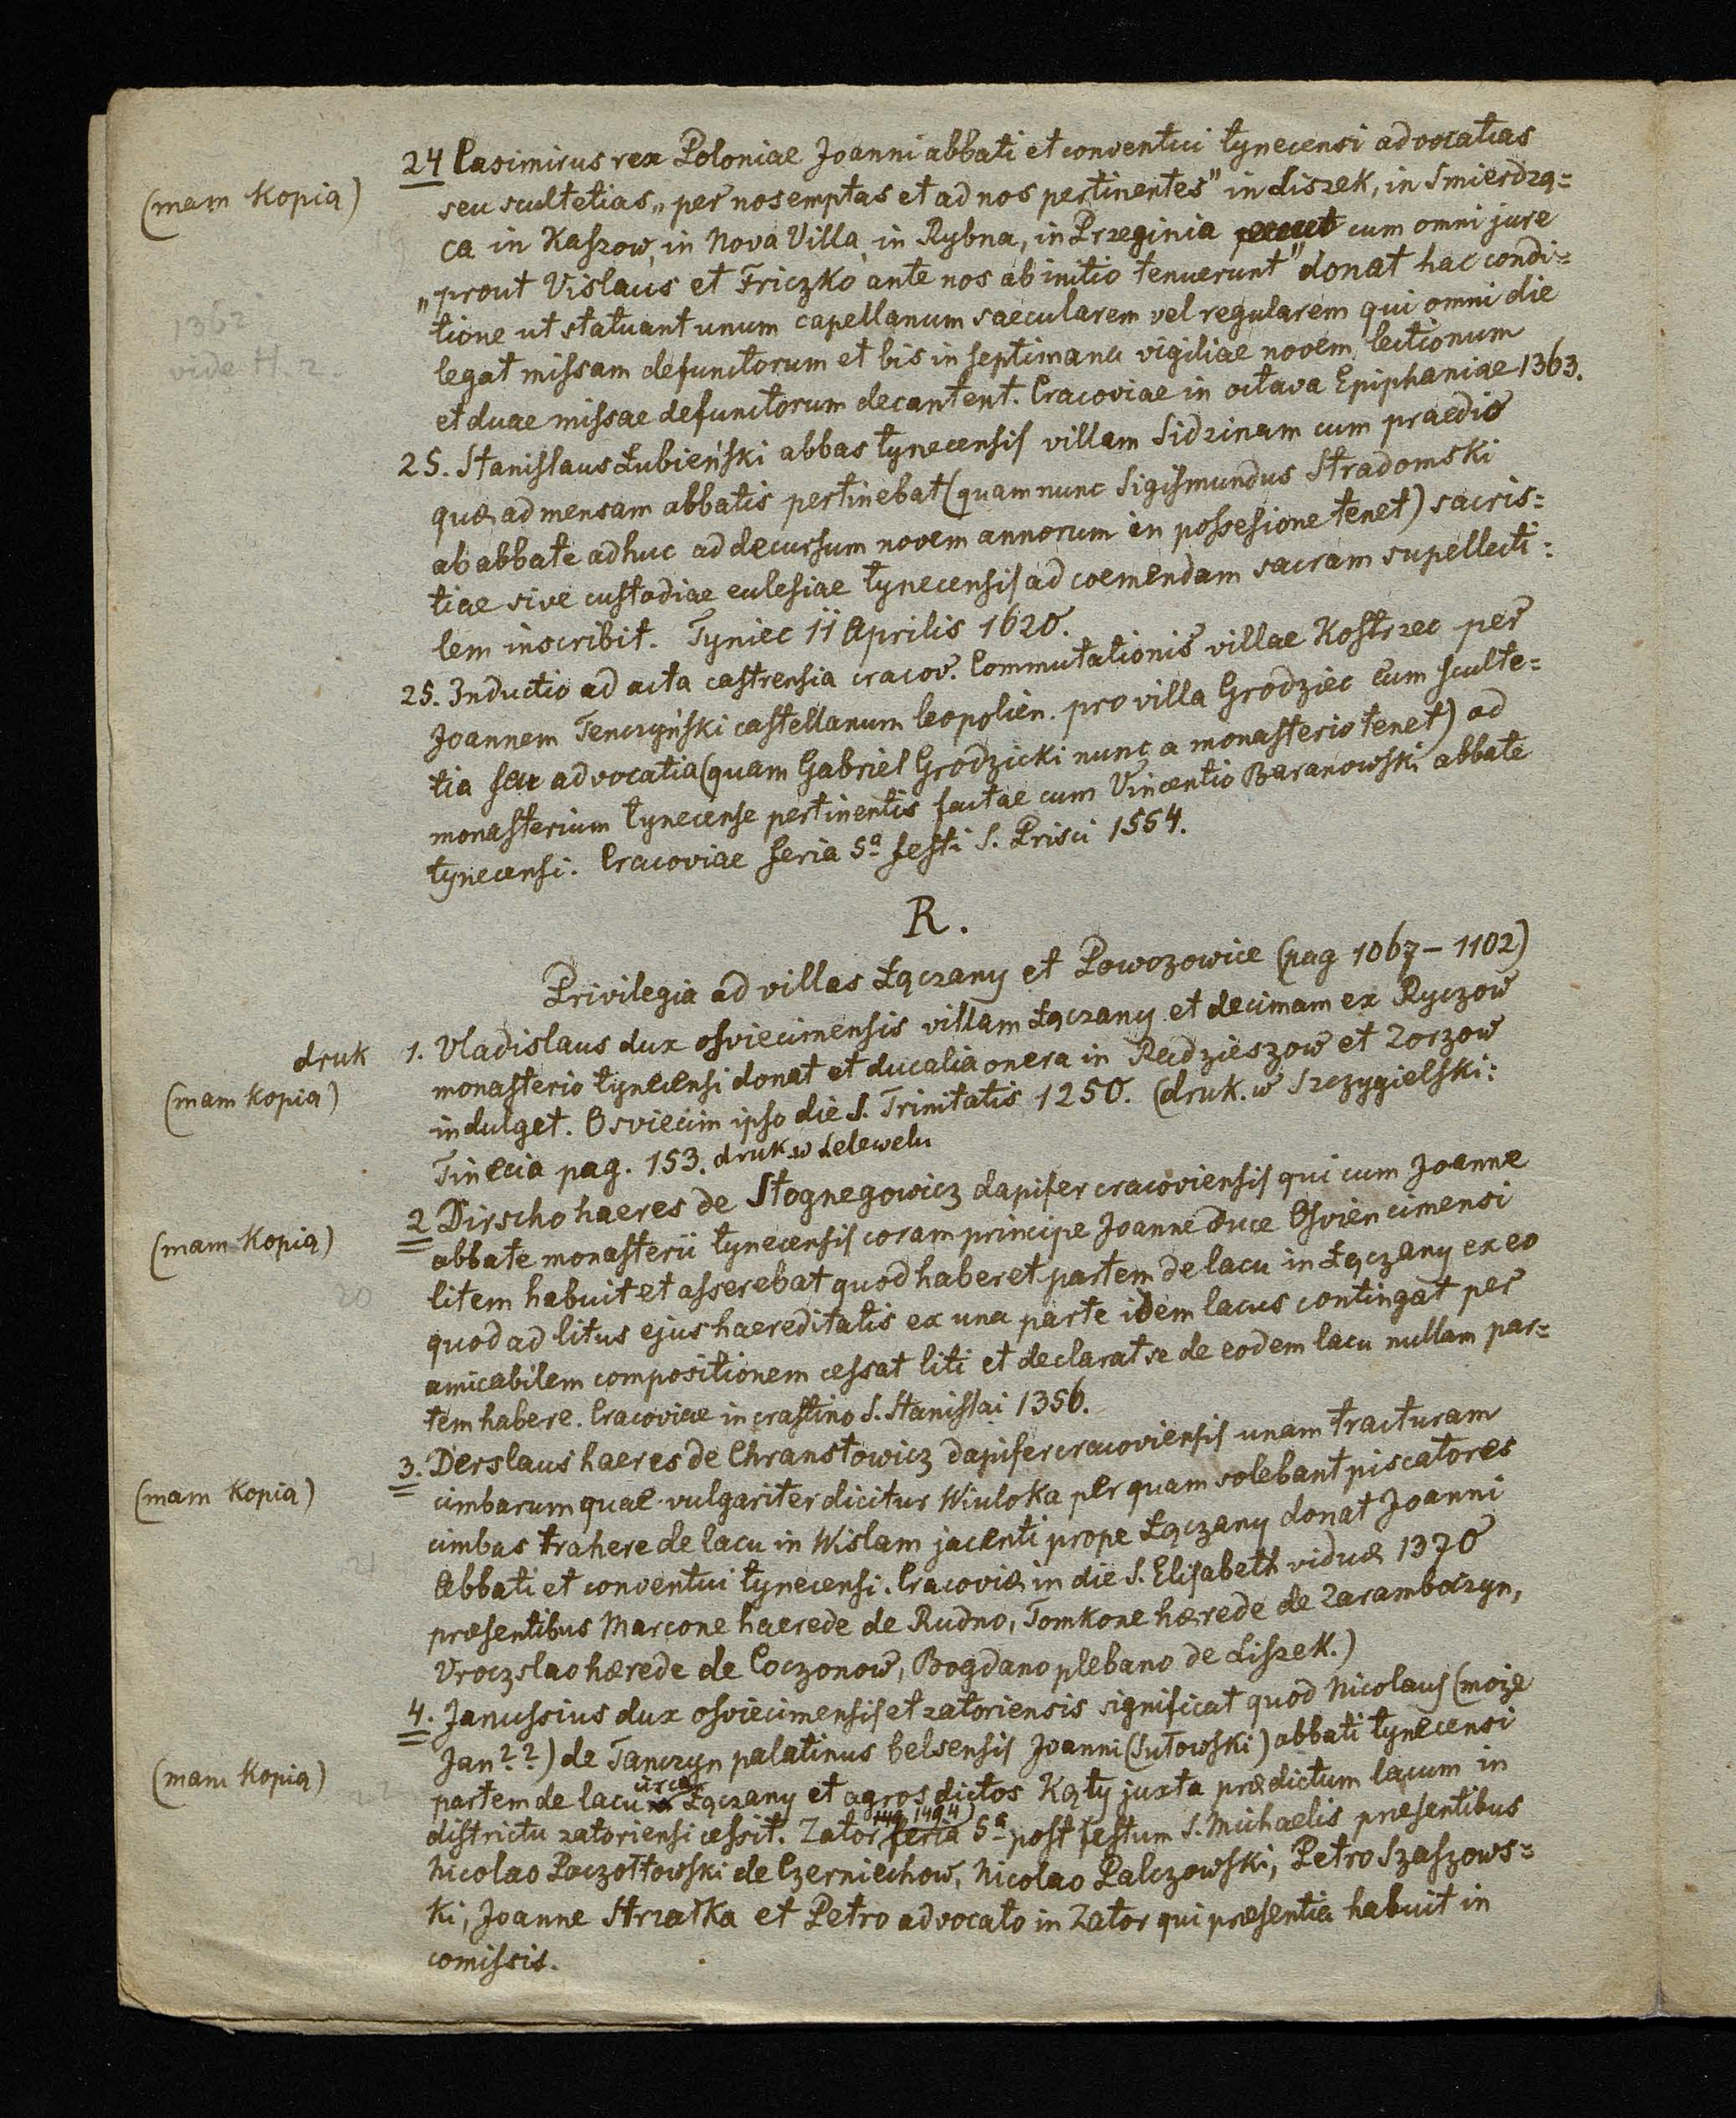 24 Casimirus rex Poloniae Joanni abbati et conventui tynecensi advocatias
(mam kopią)
seu scultetias „per nos emptas et ad nos pertinentes" in Liszek, in Smierdzą=
ca in Kaszow, in Nova Villa, in Rybna, in Przeginia cum omni jure
„prout Vislaus et Friczko ante nos ab initio tenuerunt" donat hac condi=
tione ut statuant unum capellanum saecularem vel regularem qui omni die
1362
vide H. 2.
legat missam defunctorum et bis in septimana vigiliae novem lectionum
et duae missae defunctorum decantent. Cracoviae in octava Epiphaniae 1363.
25. Stanislaus Łubieński abbas tynecensis villam Sidzinam cum praedio
quæ ad mensam abbatis pertinebat (quam nunc Sigismundus Stradomski
ab abbate adhuc ad decursum novem annorum in possesione tenet) sacris=
tiae sive custodiae eclesiae tynecensis ad coemendam sacram supellecti=
lem inscribit. Tyniec 11 Aprilis 1620.
25. Inductio ad acta castrensia cracov. Commutationis villae Kostrzec per
Joannem Tenczyński castellanum leopolien. pro villa Grodziec cum sculte=
tia seu advocatia (quam Gabriel Grodzicki nunc a monasterio tenet) ad
monasterium tynecense pertinentis factae cum Vincentio Baranowski abbate
tynecensi. Cracoviae feria 5ª festi S. Prisci 1554.
R.
Privilegia ad villas Łączany et Powozowice (pag 1067 – 1102)
druk
1. Vladislaus dux osviecimensis villam Łączany et decimam ex Ryczow
(mam kopią)
monasterio tynecensi donat et ducalia onera in Radzieszow et Zorzow
indulget. Osviecim ipso die S. Trinitatis 1250. (druk. w Szczygielski:
Tinecia pag. 153. druk. w Lelewelu
2 Dirscho haeres de Stognegowicz dapifer cracoviensis qui cum Joanne
(mam kopią)
abbate monasterii tynecensis coram principe Joanne duce Osviencimensi
litem habuit et asserebat quod haberet partem de lacu in Łączany ex eo
20
quod ad litus ejus haereditatis ex una parte idem lacus contingat per
amicabilem compositionem cessat liti et declarat se de eodem lacu nullam par=
tem habere. Cracoviae in crastino S. Stanislai 1356.
3. Derslaus haeres de Chranstowicz dapifer cracoviensis unam tracturam
(mam kopią)
cimbarum quae vulgariter dicitur Wiuloka per quam solebant piscatores
cimbas trahere de lacu in Wislam jacenti prope Łączany donat Joanni
21
Abbati et conventui tynecensi. Cracoviæ in die S. Elisabeth viduæ 1370
præsentibus Marcone haerede de Rudno, Tomkone hærede de Zaramboczyn,
Vroczslao hærede de Coczonow, Bogdano plebano de Liszek.)
4. Janussius dux osviecimensis et zatoriensis significat quod Nicolaus (może
Jan??) de Tanczyn palatinus belsensis Joanni (Sułowski) abbati tynecensi
(mam kopią)
partem de lacu circa Łączany et agros dictos Kąty juxta prædictum lacum in
districtu zatoriensi cessit. Zator 1494) feria 5ª post festum S. Michaelis præsentibus
Nicolao Paczołtowski de Czerniechow, Nicolao Palczowski, Petro Szaszows=
ki, Joanne Strzałka et Petro advocato in Zator qui præsentia habuit in
comissis.